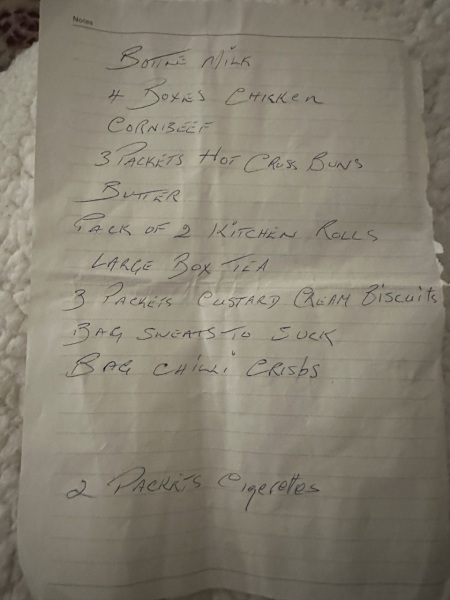 Notes
BOTTLE MILK
4 BOXES CHICKEN
CORNIBEEF
3 PACKETS HOT CROSS BUNS
BUTTER
PACK OF 2 KITCHEN ROLLS
LARGE BOX TEA
3 PACKETS CUSTARD CREAM BISCUITS
BAG SWEATS TO SUCK
BAG CHILLI CRISPS
2 PACKETS Cigerettes